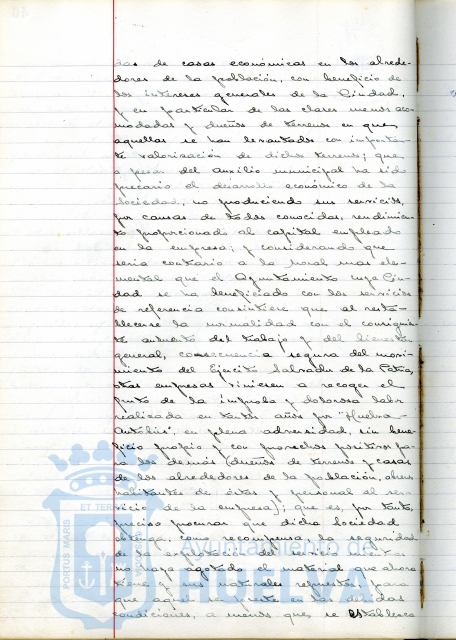 das de casas económicas en los alrede-
dores de la población, con beneficio de
los intereses generales de la Ciudad,
y en particular de las clases menos aco-
modadas y dueños de terrenos en que
aquellas se han levantado con importan-
te valorización de dichos terrenos; que,
a pesar del auxilio municipal ha sido
precario el desarrollo económico de la
Sociedad, no produciendo sus servicios,
por causas de todos conocidas, rendimien-
to proporcionado al capital empleado
en la empresa; y considerando que
sería contrario a la moral mas ele-
mental que el Ayuntamiento cuya Ciu-
dad se ha beneficiado con los servicios
de referencia consintiese que al resta-
blecerse la normalidad con el consiguien-
te aumento del trabajo y del bienestar
general, consecuencia segura del movi-
miento del Ejército Salvador de la Patria,
otras empresas viniesen a recoger el
fruto de la improba y dolorosa labor
realizada en tantos años por "Huelva-
Autobús", en plena adversidad, sin bene-
ficio propio y con provechos positivos pa-
ra los demás (dueños de terrenos y casas
de los alrededores de la población, obreros
habitantes de éstas y personal al ser-
vicio de la empresa); que es, por tanto,
preciso procurar que dicha Sociedad
obtenga, como recompensa, la seguridad
de la explotación del
no haya agotado el material que ahora
tiene y sus naturales repuestos, para
que aquel se preste en las debidas
condiciones, a menos que se establezca
PORTUS MARIS
ET TER
Ayuntamiento de
HUELVA